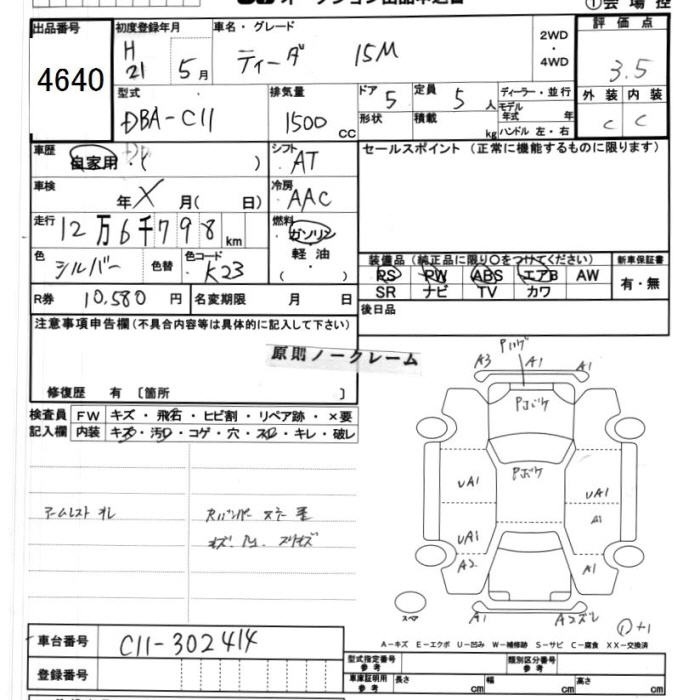 オークション出品申込書
①会場控
出品番号
4640
初度登録年月
H
21 5月
車名・グレード
ティーダ 15M
2WD
・
4WD
評価点
3.5
外装 内装
C C
型式
DBA-C11
排気量
1500 CC
ドア 5
形状
定員 5 人
積載 kg
ディーラー・並行
モデル年式 年
ハンドル 左・右
車歴
自家用・( )
シフト
AT
セールスポイント (正常に機能するものに限ります)
車検
年 X 月( 日)
冷房
AAC
走行
12万6千798km
燃料
ガソリン
軽油
( )
色
シルバー
色替
色コード
K23
装備品 (純正品に限り○をつけてください)
PS PW ABS エアB AW
SR ナビ TV カワ
新車保証書
有・無
R券 10,580 円
名変期限 月 日
後日品
注意事項申告欄(不具合内容等は具体的に記入して下さい)
原則ノークレーム
修復歴 有 〔箇所 〕
検査員
記入欄
FW キズ・飛石・ヒビ割・リペア跡・×要
内装 キズ・汚レ・コゲ・穴・スレ・キレ・破レ
アームレスト オレ
A3 A1 A1
Pボケ
Pボケ
UA1 UA1
A1
UA1
A2 A1
スペア
A1 A2ズレ
①+1
A-キズ E-エクボ U-凹み W-補修跡 S-サビ C-腐食 XX-交換済
車台番号
C11-302414
登録番号
型式指定番号
参考
類別区分番号
参考
車庫証明用
参考
長さ cm
幅 cm
高さ cm